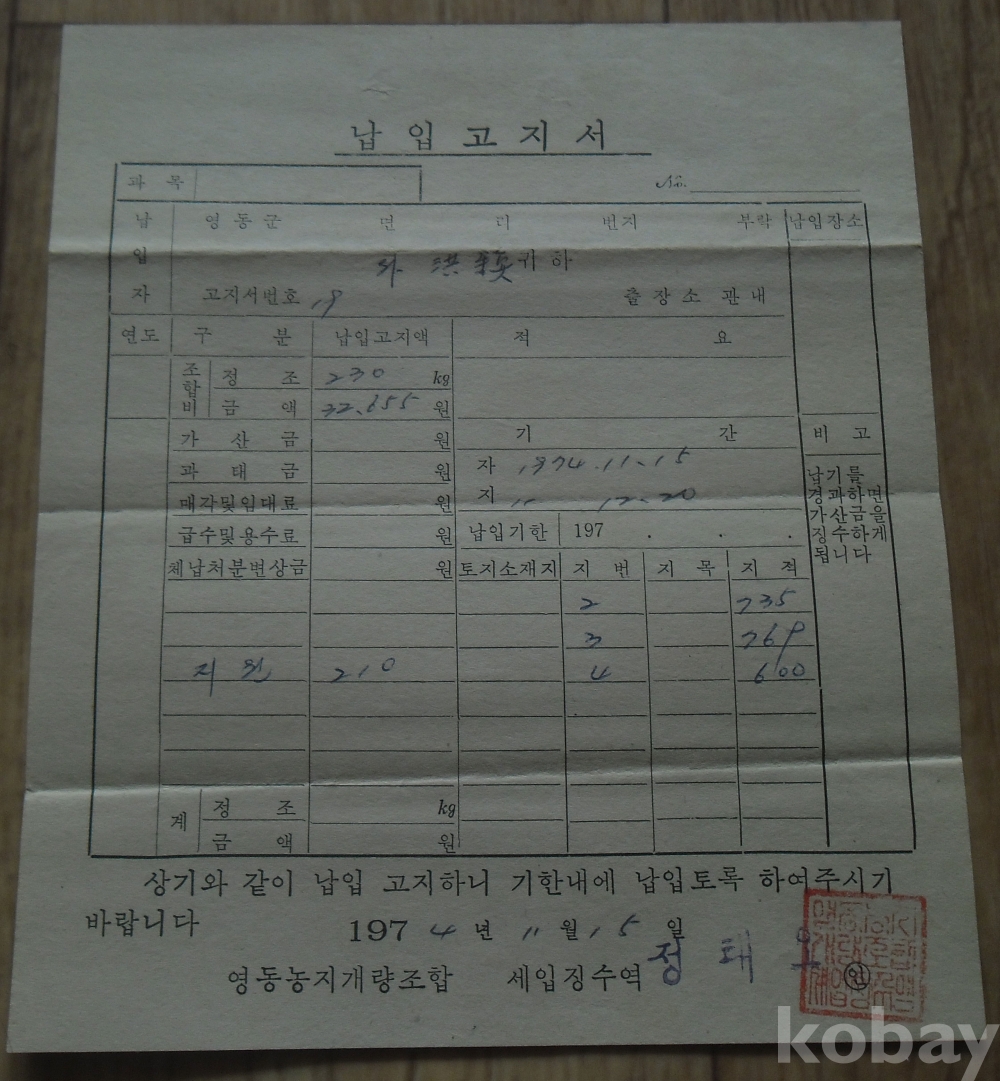 납입고지서
과목 No.
납입자 영동군 면 리 번지 부락 납입장소
洪 귀하
고지서번호 19 출장소 관내
연도 구 분 납입고지액 적 요
조합비 정 조 230 kg
금 액 32.655 원
가 산 금 원 기 간 비 고
과 태 금 원 자 1974.11.15
매각및임대료 원 지 〃 12.20
급수및용수료 원 납입기한 197 . . .
납기를
경과하면
가산금을
징수하게
됩니다
체납처분변상금 원 토지소재지 지 번 지 목 지 적
2 735
3 769
지원 210 4 600
계 정 조 kg
금 액 원
상기와 같이 납입 고지하니 기한내에 납입토록 하여주시기
바랍니다 1974년 11월 15일
영동농지개량조합 세입징수역 정태 인
kobay